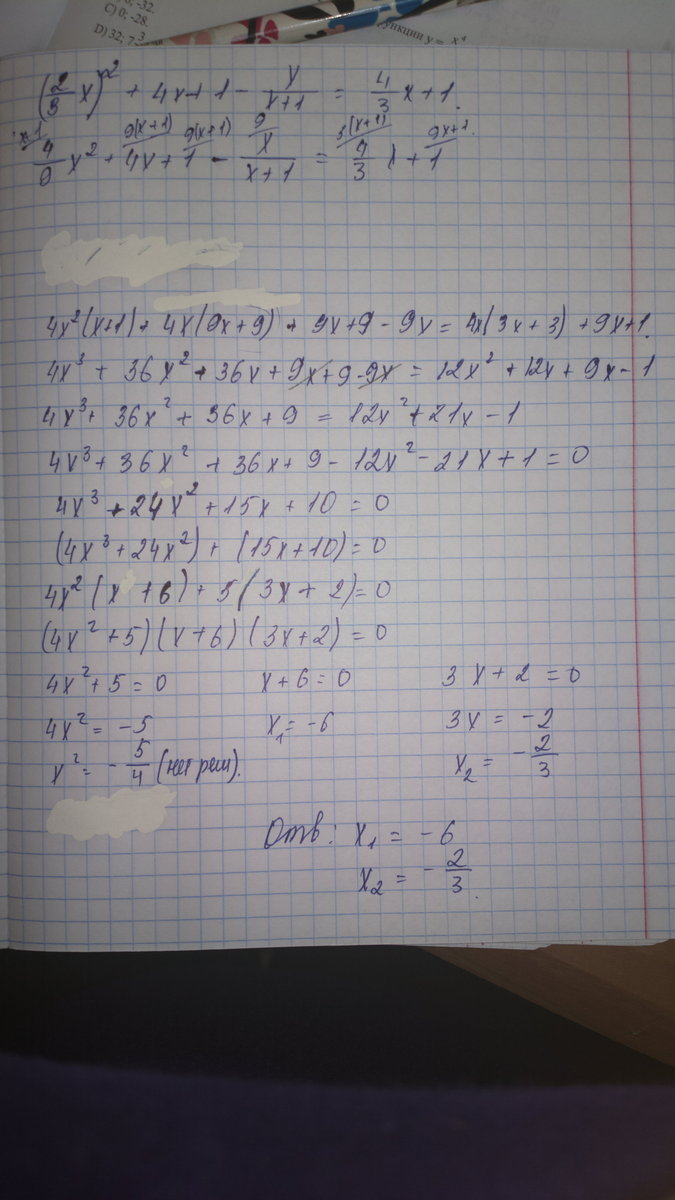 C) 0; -28.
D) 32; 7
ункции y = x⁴
(2/3 x)² + 4x + 1 - x/(x+1) = 4/3 x + 1.
x+1 9(x+1) 9(x+1) 9 3(x+1) 9x+1.
4/9 x² + 4x + 1 - x/(x+1) = 4/3 x + 1
4x²(x+1) + 4x(9x+9) + 9x+9 - 9x = 4x(3x+3) + 9x+1.
4x³ + 36x² + 36x + 9x + 9 - 9x = 12x² + 12x + 9x - 1
4x³ + 36x² + 36x + 9 = 12x² + 21x - 1
4x³ + 36x² + 36x + 9 - 12x² - 21x + 1 = 0
4x³ + 24x² + 15x + 10 = 0
(4x³ + 24x²) + (15x + 10) = 0
4x² (x + 6) + 5 (3x + 2) = 0
(4x² + 5) (x + 6) (3x + 2) = 0
4x² + 5 = 0 x + 6 = 0 3x + 2 = 0
4x² = -5 x₁ = -6 3x = -2
x² = - 5/4 (нет реш). x₂ = - 2/3
Отв: x₁ = -6
x₂ = - 2/3.